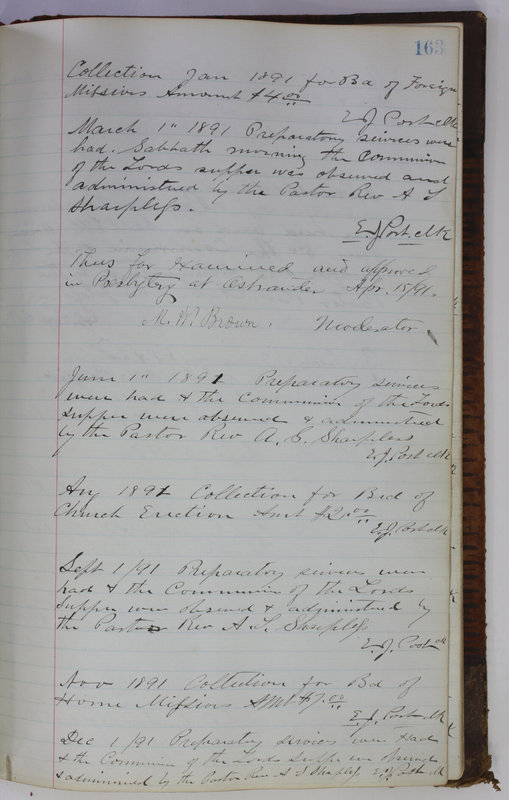 163
Collection Jan 1891 for Bd of Foreign
Missions Amount $4.00
E J Post clk
March 1st 1891 Preparatory services were
had. Sabbath morning the Communion
of the Lords supper was observed and
administered by the Pastor Rev A S
Sharpless.
E. J. Post. clk
Thus far examined and approved
in Presbytery at Ostrander Apr. 15/91.
M. W. Brown. Moderator
June 1st 1891 Preparatory services
were had & the Communion of the Lords
supper were observed & administered
by the Pastor Rev A. S. Sharpless
E. J. Post clk
Aug 1891 Collection for Brd of
Church Erection Amt $2.00
E. J. Post clk
Sept 1/91 Preparatory services were
had & the Communion of the Lords
Supper were observed & administered by
the Pastor Rev A S. Sharpless
E. J. Post clk
Nov 1891 Collection for Bd of
Home Missions Amt $7.00
E. J. Post clk
Dec 1/91 Preparatory services were had
& the Communion of the Lords Supper were observed
& administered by the Pastor Rev A S Sharpless E. J. Post clk